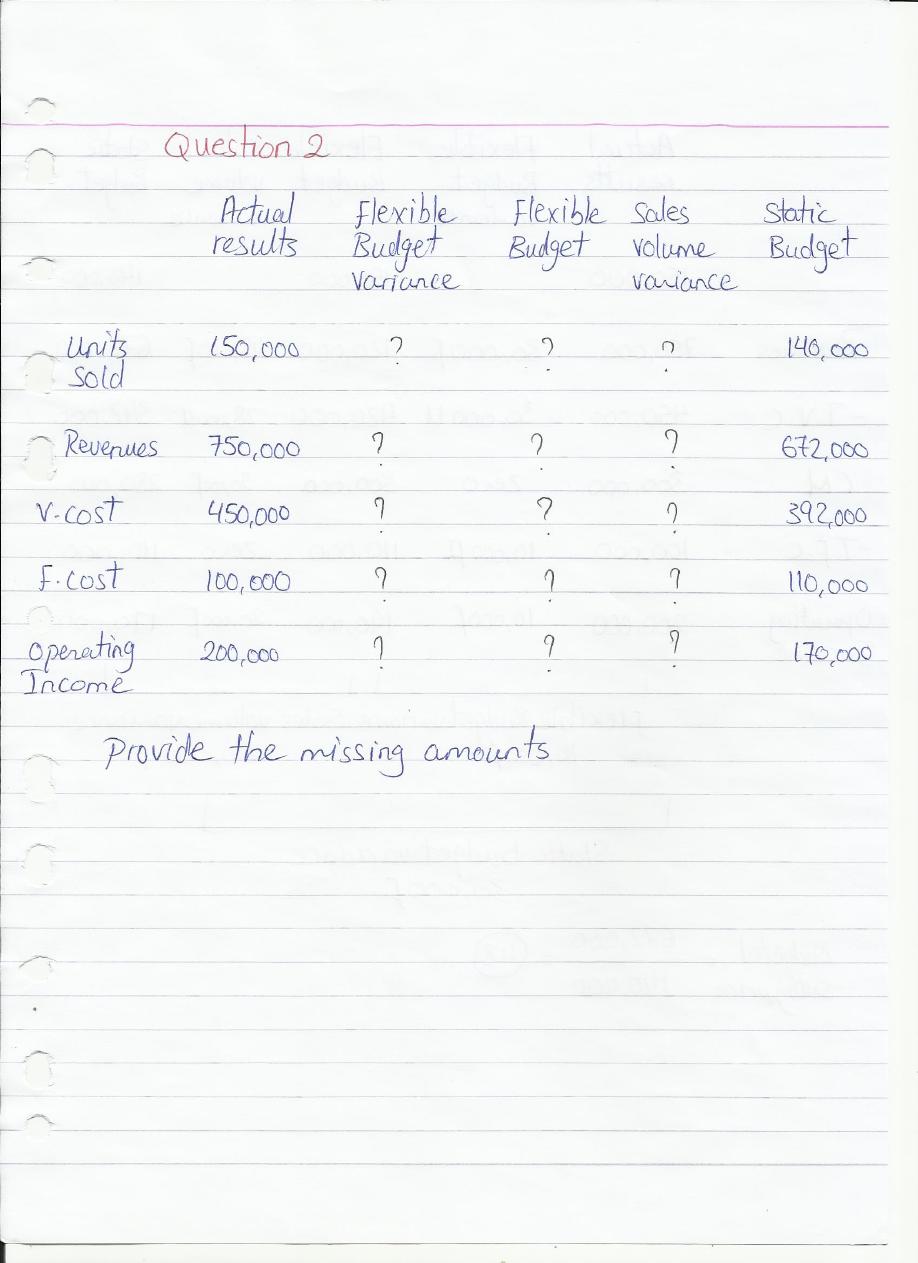 Question 2
Actual Flexible Flexible Sales Static
results Budget Budget volume Budget
variance variance
Units 150,000 ? ? ? 140,000
Sold
Revenues 750,000 ? ? ? 672,000
V.cost 450,000 ? ? ? 392,000
F.cost 100,000 ? ? ? 110,000
Operating 200,000 ? ? ? 170,000
Income
Provide the missing amounts